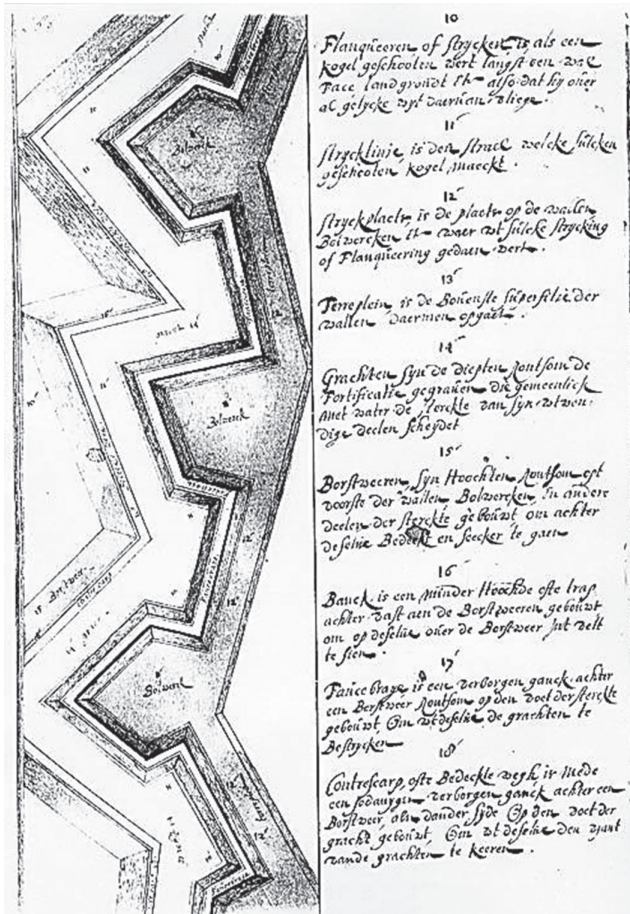 10
Flanqueeren of strycken, is als een
kogel geschooten wert langst een wal
Face landgrondt Et also dat hy over
al gelycke wyt daervan vliege.
11
strycklinie, is den strael welcke sulcken
geschooten kogel maeckt.
12
stryckplaets, is de plaets op de wallen
Bolwercken Et waer wt sulcke strycking
of Flanqueering gedaen wert.
13
Terreplein, is de Bovenste superfitie der
wallen daermen opgaet.
14
Grachten syn de diepten Rontsom de
Fortificatie gegraven die gemeenlick
Met water de sterckte van syn wtwen-
dige deelen scheydet
15
Borstweeren, syn Hoochten Rontsom opt
voorste der wallen Bolwercken, in andere
deelen der sterckte gebouwt om achter
deselve Bedeckt en seecker te gaen
16
Banck is een minder Hoochde ofte trap
achter vast aen de Borstweeren gebouwt
om op deselve over de Borstweer int velt
te sien.
17
Faucebraye is een verborgen ganck achter
een Borstweer Rontsom op den voet der sterckte
gebouwt Om wt deselve de grachten te
Bestrycken
18
Contrescarp, ofte Bedeckte wegh is Mede
een sodanygen verborgen ganck achter een
Borstweer, als dander syde Op den voet der
gracht gebouwt, Om wt deselve den vyant
vande grachten te keeren.
Bolwerk
Bolwerck
Bolwerk